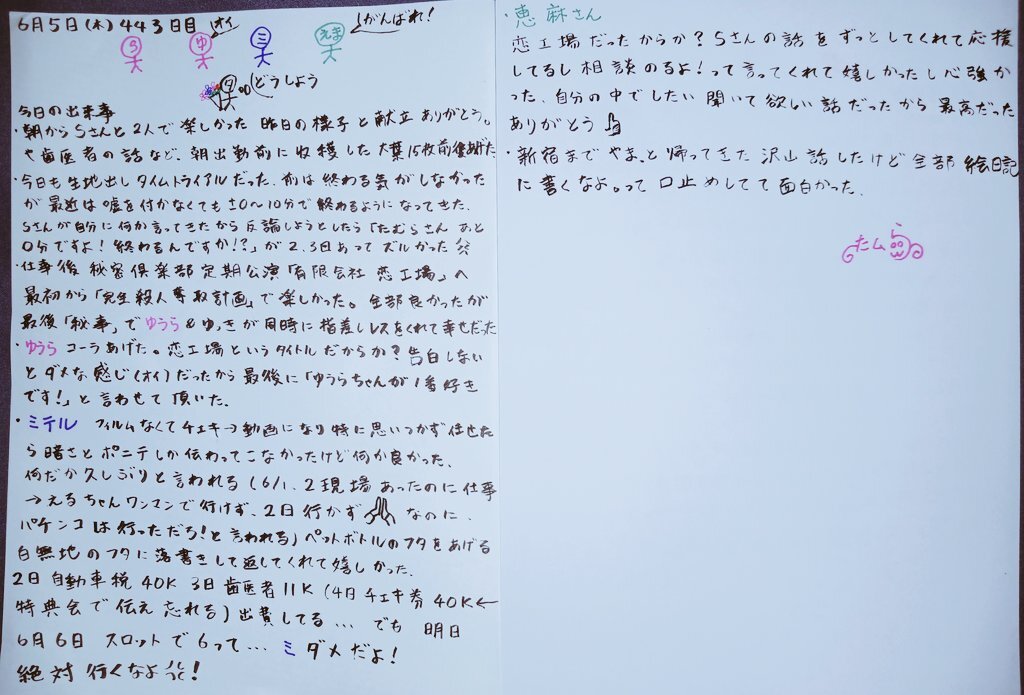 6月5日(木)443日目
(オイ
がんばれ!
う
ゆ
ミ
えま
タ
どうしよう
今日の出来事
・朝からSさんと2人で楽しかった 昨日の様子と献立ありがとう。
や歯医者の話など、朝出勤前に収穫した大葉15枚前後あげた
・今日も生地出しタイムトライアルだった、前は終わる気がしなかった
が最近は嘘を付かなくても±0〜10分で終わるようになってきた、
Sさんが自分に何か言ってきたから反論しようとしたら「たむらさん あと
0分ですよ!終わるんですか!?」が2、3日あってズルかった
・仕事後 秘密倶楽部定期公演「有限会社 恋工場」へ
最初から「完全殺人奪取計画」で楽しかった。全部良かったが
最後「秘事」でゆうら&ゆっきが同時に指差しレスをくれて幸せだった
・ゆうら コーラあげた。恋工場というタイトルだからか?告白しない
とダメな感じ(オイ)だったから最後に「ゆうらちゃんが1番好き
です!」と言わせて頂いた、
・ミテル フィルムなくてチェキ→動画になり特に思いつかず任せた
ら暗さとポニテしか伝わってこなかったけど何か良かった、
何だか久しぶりと言われる(6/1、2現場あったのに仕事
→えるちゃんワンマンで行けず、2日行かず なのに、
パチンコは行っただろ!と言われる)ペットボトルのフタをあげる
白無地のフタに落書きして返してくれて嬉しかった、
2日自動車税40K 3日歯医者11K(4日チェキ券40K←
特典会で伝え忘れる)出費してる... でも 明日
6月6日 スロットで6って... ミ ダメだよ!
絶対行くなよ!
・恵麻さん
恋工場だったからか?Sさんの話をずっとしてくれて応援
してるし相談のるよ!って言ってくれて嬉しかったし心強か
った、自分の中でしたい聞いて欲しい話だったから最高だった
ありがとう
・新宿までやまっと帰ってきた 沢山話したけど全部絵日記
に書くなよ。って口止めしてて面白かった、
たムら